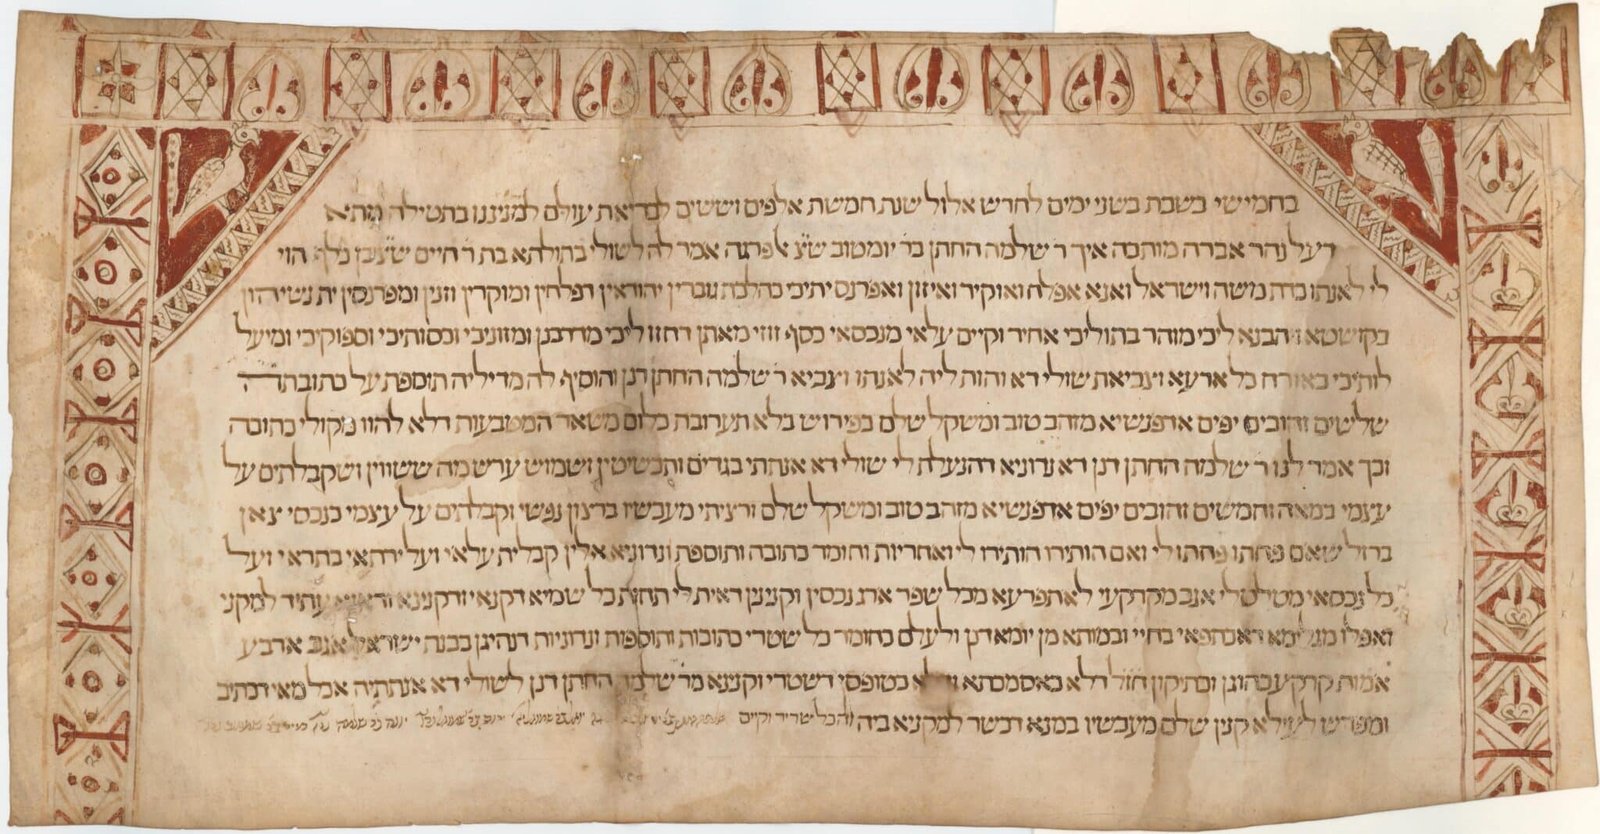 בחמישי בשבת בשני ימים לחדש אלול שנת חמשת אלפים וששים לבריאת עולם למנייננו בתטילה מתא
דעל נהר אברה מותבה איך ר שלמה החתן בר יומטוב אמר לה לשולי בתולתא בת ר חיים הוי
לי לאנתו כדת משה וישראל ואנא אפלח ואוקיר ואיזון ואפרנס יתיכי כהלכת גוברין יהודאין דפלחין ומוקרין וזנין ומפרנסין ית נשיהון
בקושטא ויהבנא ליכי מוהר בתוליכי אחיד וקיים עלאי מנכסאי כסף זוזי מאתן דחזו ליכי מדרבנן ומזוניכי וכסותיכי וספוקיכי ומיעל
לותיכי כאורח כל ארעא וצביאת שולי דא והות ליה לאנתו וצביא ר שלמה החתן דנן והוסיף לה מדיליה תוספת על כתובתה
שלשים זהובים יפים אדפנשיא מזהב טוב ומשקל שלם בפירוש בלא תערובת כלום משאר המטבעות דלא להוו מקולי כתובה
וכך אמר לנו ר שלמה החתן דנן דא נדוניא דהנעלת לי שולי דא אנתתי בגדים ותכשיטין ושמוש ערש מה ששווין ושקבלתים על
עצמי במאה וחמשים זהובים יפים אדפנשיא מזהב טוב ומשקל שלם ורציתי מעכשיו ברצון נפשי וקבלתים על עצמי כנכסי צאן
ברזל שאם פחתו פחתו לי ואם הותירו הותירו לי ואחריות וחומר כתובה ותוספת ונדוניא אלין קבלית עלאי ועל ירתאי בתראי ועל
כל נכסאי מטלטלי אגב מקרקעי לאתפרעא מכל שפר ארג נכסין וקנינין דאית לי תחות כל שמיא דקנאי ודקנינא ודאנא עתיד למקני
ואפלו מגלימא דאכתפאי בחיי ובמותא מן יומא דנן ולעלם כחומר כל שטרי כתובות ותוספות ונדוניות דנהיגן בבנת ישראל אגב ארבע
אמות קרקע כהוגן וכתיקון חז"ל דלא כאסמכתא ודלא כטופסי דשטרי וקנינא מר שלמה החתן דנן לשולי דא אנתתיה אכל מאי דכתיב
ומפרש לעילא קנין שלם מעכשיו במנא דכשר למקניא ביה והכל שריר וקיים